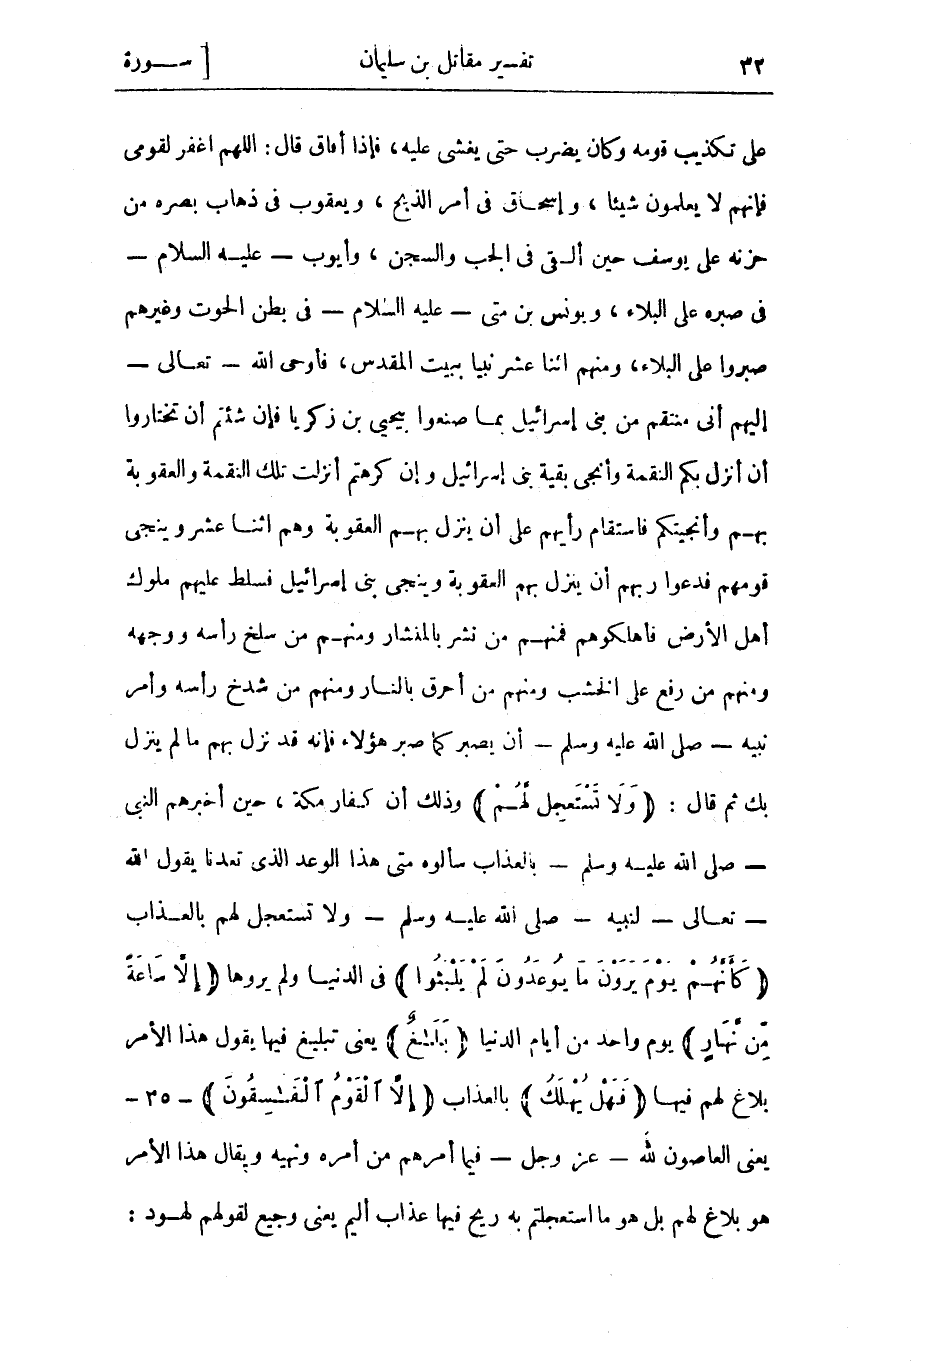 ٣٢ تفسير مقاتل بن سليمان [ سـورة
على تكذيب قومه وكان يضرب حتى يغشى عليه، فإذا أفاق قال: اللهم اغفر لقومى
فإنهم لا يعلمون شيئا ، وإسحاق فى أمر الذبح ، ويعقوب فى ذهاب بصره من
حزنه على يوسف حين ألقى فى الجب والسجن ، وأيوب — عليه السلام —
فى صبره على البلاء ، ويونس بن متى — عليه السلام — فى بطن الحوت وغيرهم
صبروا على البلاء، ومنهم اثنا عشر نبيا ببيت المقدس، فأوحى الله — تعالى —
إليهم أنى منتقم من بنى إسرائيل بما صنعوا بيحيى بن زكريا فإن شئتم أن تختاروا
أن أنزل بكم النقمة وأنجى بقية بنى إسرائيل وإن كرهتم أنزلت تلك النقمة والعقوبة
بهم وأنجيتكم فاستقام رأيهم على أن ينزل بهم العقوبة وهم اثنا عشر وينجى
قومهم فدعوا ربهم أن ينزل بهم العقوبة وينجى بنى إسرائيل فسلط عليهم ملوك
أهل الأرض فأهلكوهم فمنهم من نشر بالمنشار ومنهم من سلخ رأسه ووجهه
ومنهم من رفع على الخشب ومنهم من أحرق بالنار ومنهم من شدخ رأسه وأمر
نبيه — صلى الله عليه وسلم — أن يصبر كما صبر هؤلاء فإنه قد نزل بهم ما لم ينزل
بك ثم قال : ﴿ وَلَا تَسْتَعجِل لَّهُمْ ﴾ وذلك أن كفار مكة ، حين أخبرهم النبى
— صلى الله عليه وسلم — بالعذاب سألوه متى هذا الوعد الذى تعدنا يقول الله
— تعالى — لنبيه — صلى الله عليه وسلم — ولا تستعجل لهم بالعذاب
﴿ كَأَنَّهُمْ يَوْمَ يَرَوْنَ مَا يُوعَدُونَ لَمْ يَلْبَثُوا ﴾ فى الدنيا ولم يروها ﴿ إِلَّا سَاعَةً
مِّن نَّهَارٍ ﴾ يوم واحد من أيام الدنيا ﴿ بَلَٰغٌ ﴾ يعنى تبليغ فيها يقول هذا الأمر
بلاغ لهم فيها ﴿ فَهَلْ يُهْلَكُ ﴾ بالعذاب ﴿ إِلَّا ٱلْقَوْمُ ٱلْفَٰسِقُونَ ﴾ – ٣٥ –
يعنى العاصون لله — عز وجل — فيما أمرهم من أمره ونهيه ويقال هذا الأمر
هو بلاغ لهم بل هو ما استعجلتم به ريح فيها عذاب أليم يعنى وجيع لقولهم لهود :